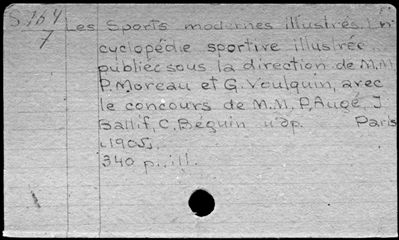 S.164
7
Les Sports modernes illustrés. En
cyclopédie sportive illustrée
publiée sous la direction de M.M.
P. Moreau et G. Voulquin, avec
le concours de M.M. P. Augé, J.
Ballif, C. Béguin u dp. Paris
1905.
340 p. ill.